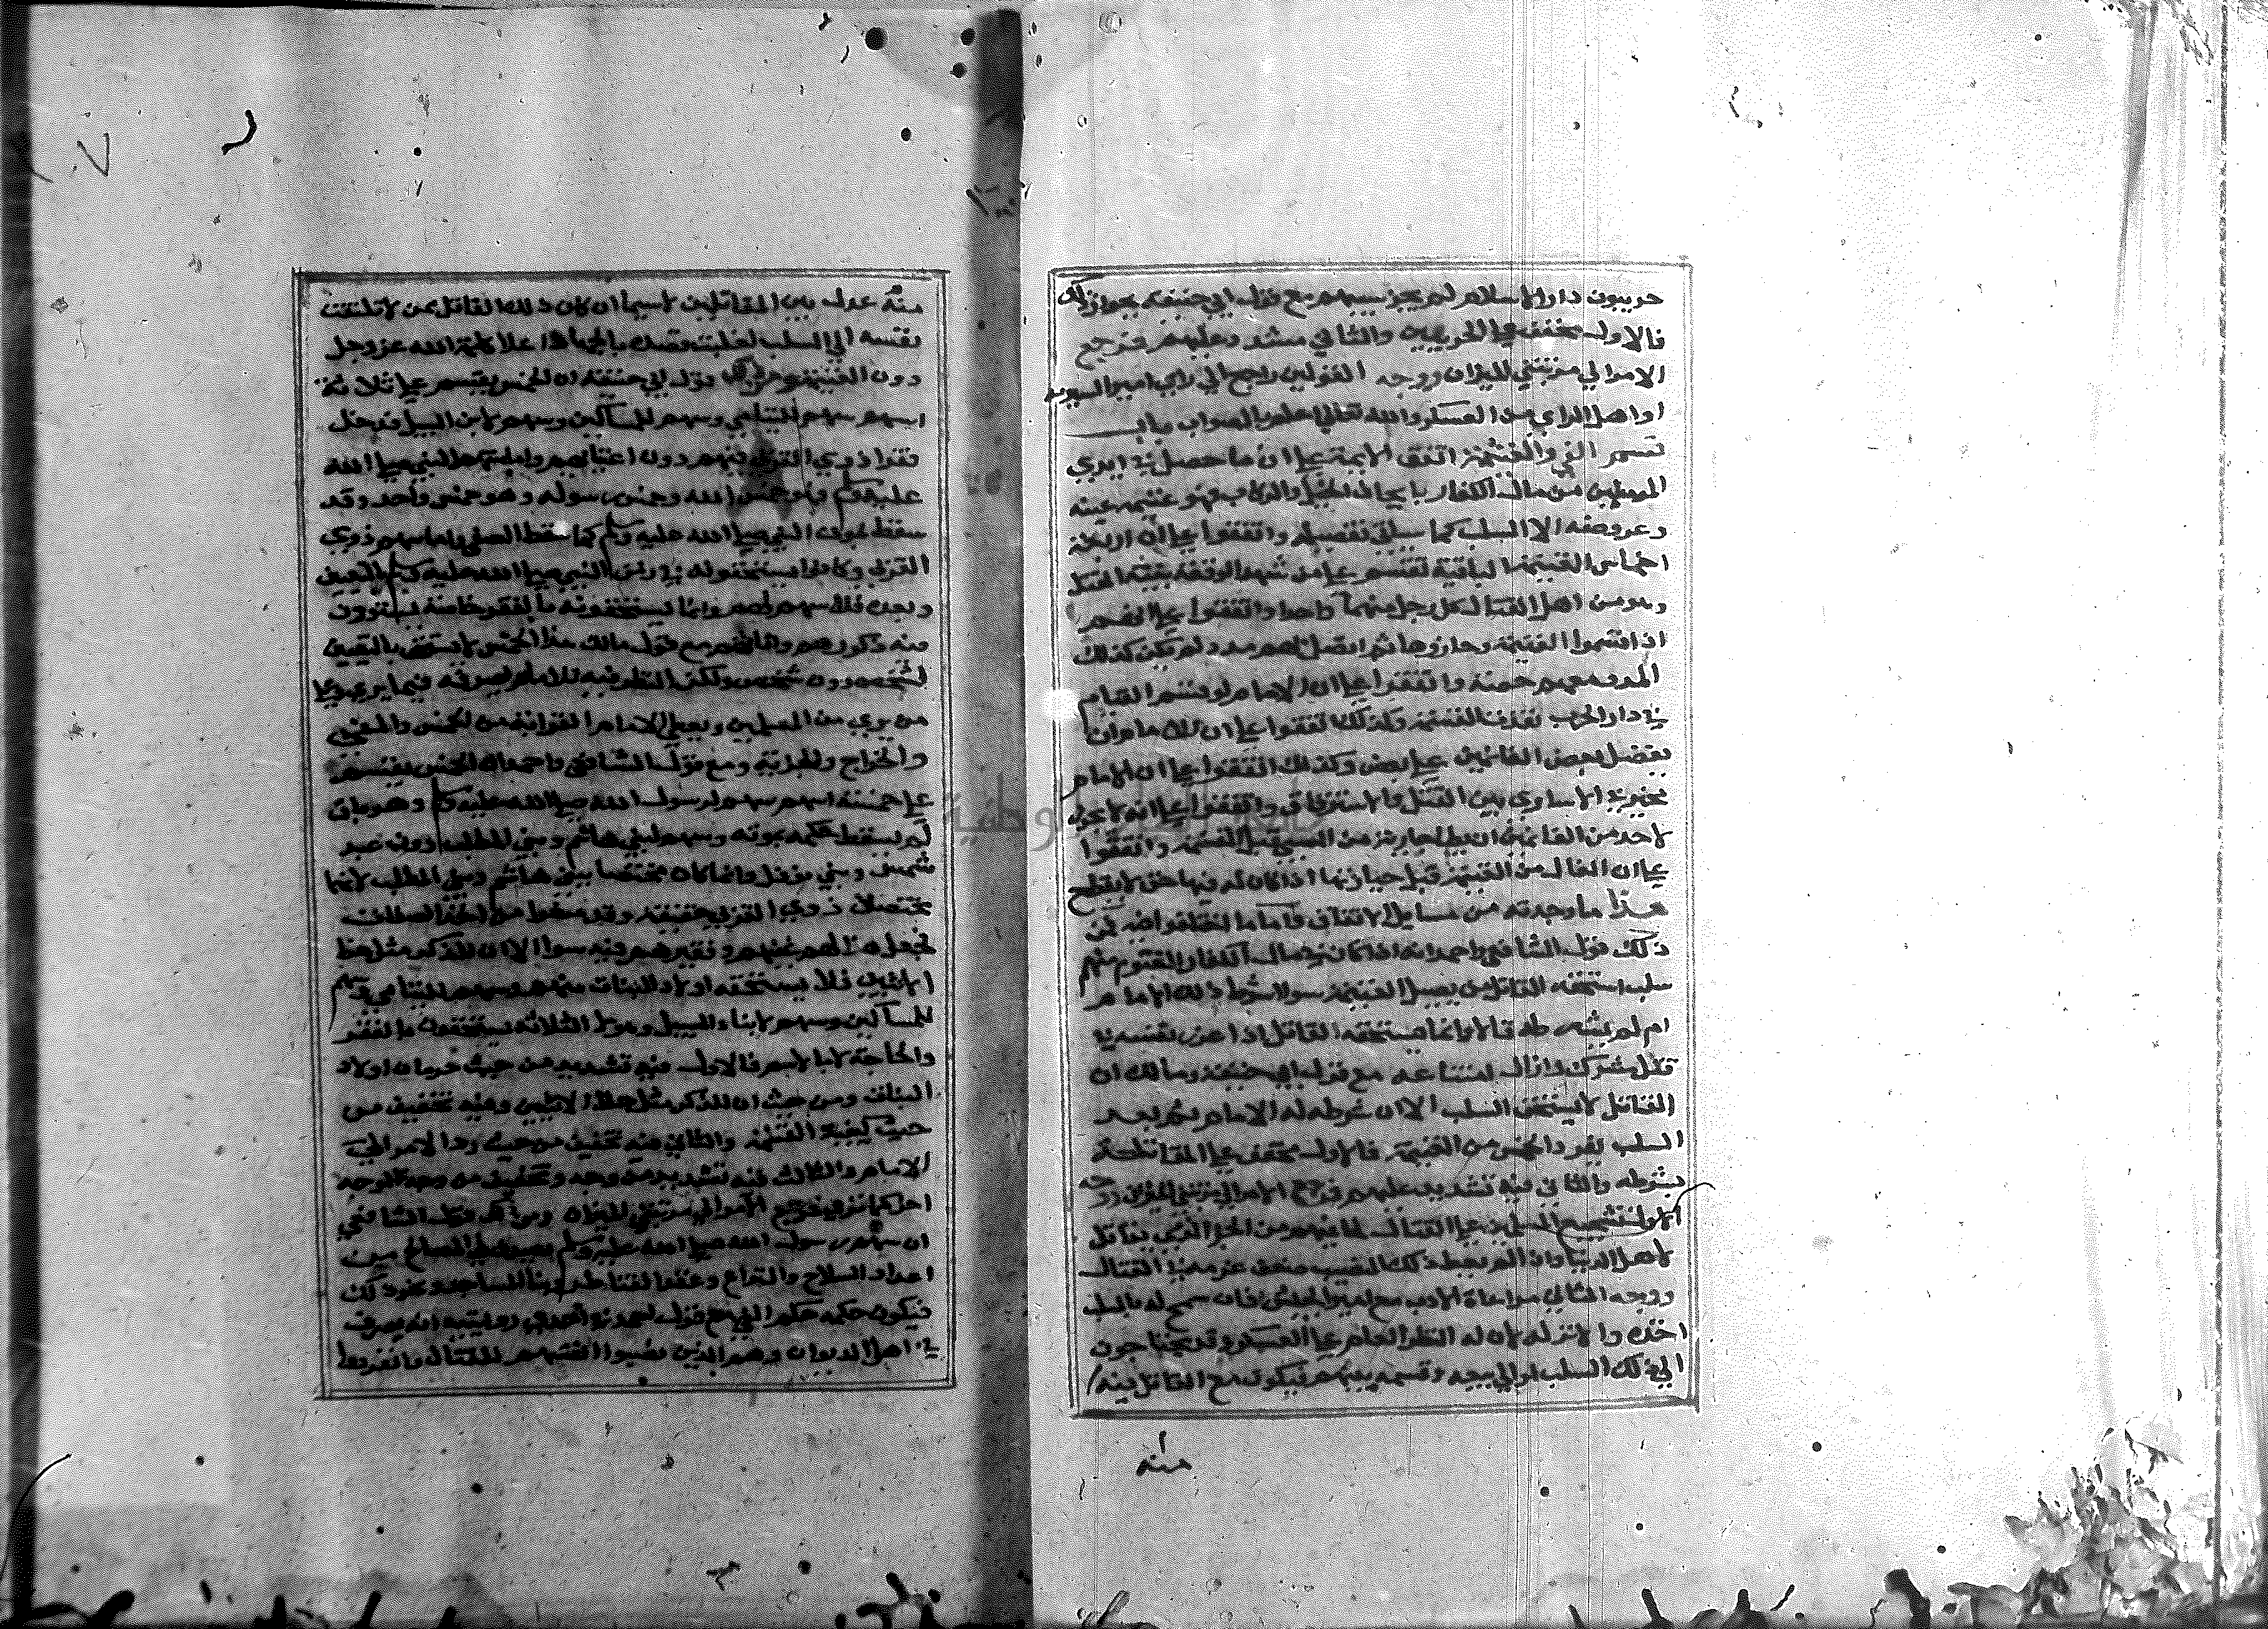 حربيون دار الاسلام لم يجز سبيهم مع قول ابي حنيفة بجواز ذلك
فالاول مخفف على الحربيين والثاني مشدد عليهم فرجع
الامر الي مرتبتي الميزان ووجه القولين راجع الي راي امير السرية
او اهل الراي من العسكر والله تعالي اعلم بالصواب باب
قسم الفي والغنيمة اتفق الايمة على ان ما حصل في ايدي
المسلمين من مال الكفار بايجاف الخيل والركاب فهو غنيمة عينه
وعروضه الا السلب كما سياتي تفصيله واتفقوا على ان اربعة
اخماس الغنيمة الباقية تقسم على من شهد الوقعة بنية القتال
وهو من اهل القتال لكل رجل منهما واحدا واتفقوا على انهم
اذا اقتسموا الغنيمة وحازوها ثم اتصل بهم مدد لم يكن كذلك
المدد معهم حصة واتفقوا على ان الامام لو قسم الغنايم
في دار الحرب نفذت القسمة وكذلك اتفقوا على ان للامام ان
يفضل بعض الغانمين على بعض وكذلك اتفقوا على ان الامام
مخير في الاساري بين القتل والاسترقاق واتفقوا على انه لا يجوز
لاحد من الغانمين ان يطا جارية من السبي قبل القسمة واتفقوا
على ان الغال من الغنيمة قبل حيازتها اذا كان له فيها حق لا يقطع
هذا ما وجدته من مسايل الاتفاق فاما ما اختلفوا فيه فمن
ذلك قول الشافعي واحمد انه اذا كان في مال الكفار المقتوم منهم
سلب استحقه القاتل من اصل الغنيمة سوا اشرط ذلك الامام
ام لم يشرطه قالا وانما يستحقه القاتل اذا غرر بنفسه في
قتل مشرك وازال امتناعه مع قول ابي حنيفة ومالك ان
القاتل لا يستحق السلب الا ان شرطه له الامام ثم بعد
السلب يفرد الخمس من الغنيمة فالاول مخفف على المقاتلة
بشرطه والثاني فيه تشديد عليهم فرجع الامر الي مرتبتي الميزان ووجه
الاول تشجيع المسلمين على القتال لما فيهم من الجزا الذي يقاتل
لاهل الدنيا وان لم يعط ذلك النصيب ضعف عزمه في القتال
ووجه الثاني مراعاة الادب مع امير الجيش فان سمح له بالسلب
اخذه والا تركه لان له النظر العام على العسكر وقد يحتاجون
الي ذلك السلب او الي بيعه وقسمه بينهم فيكون مع القاتل فيه
منه
منه عدل بين المقاتلين لاسيما ان كان ذلك القاتل ممن لا تلتفت
نفسه الي السلب لغلبة قصده بالجهاد اعلا كلمة الله عز وجل
دون الغنيمة ومن ذلك قول ابي حنيفة ان الخمس يقسم على ثلاثة
اسهم سهم لليتامي وسهم للمساكين وسهم لابن السبيل فدخل
فقرا ذوي القربي فيهم دون اغنيايهم واما سهم النبي صلى الله
عليه وسلم فهو خمس الله وخمس رسوله وهو خمس واحد وقد
سقط بموت النبي صلى الله عليه وسلم كما سقط الصفي واما سهم ذوي
القربي وكانوا يستحقونه في زمن النبي صلى الله عليه وسلم بالنصرة
وبعده فلا سهم لهم وانما يستحقونه بالفقر خاصة يستوون
فيه ذكورهم واناثهم مع قول مالك هذا الخمس لا يستحق بالتعيين
لشخص دون شخص ولكن النظر فيه للامام يصرفه فيما يري وعلى
من يري من المسلمين ويعطي الامام القرابة من الخمس والفي
والخراج والجزية ومع قول الشافعي واحمد ان الخمس يقسم
على خمسة اسهم سهم لرسول الله صلى الله عليه وسلم وهو باق
لم يسقط حكمه بموته وسهم لبني هاشم وبني المطلب دون عبد
شمس وبني نوفل وانما كان مختصا ببني هاشم وبني المطلب لانهما
مختصان ذوي القربي حقيقة وقد منعوا من اخذ الصدقات
فجعل هذا لهم غنيهم وفقيرهم فيه سوا الا ان للذكر مثل حظ
الانثيين فلا يستحقه اولاد البنات منهم وسهم لليتامي وسهم
للمساكين وسهم لابناء السبيل وهولا الثلاثة يستحقون بالفقر
والحاجة لا بالاسم فالاول فيه تشديد من حيث حرمان اولاد
البنات ومن حيث ان للذكر مثل حظ الانثيين وفيه تخفيف من
حيث كيفية القسمة والثاني فيه تخفيف من حيث رد الامر الي
الامام والثالث فيه تشديد من وجه وتخفيف من وجه لاوجه
احدها نري فرجع الامر الي مرتبتي الميزان ومن ذلك قول الشافعي
ان سهم رسول الله صلى الله عليه وسلم يصرف في المصالح من
اعداد السلاح والكراع وعقد القناطر وبنا المساجد ونحو ذلك
فيكون حكمه حكم الفي مع قول احمد في احدي روايتيه انه يصرف
في اهل الديوان وهم الذين نصبوا انفسهم للقتال وانفردوا